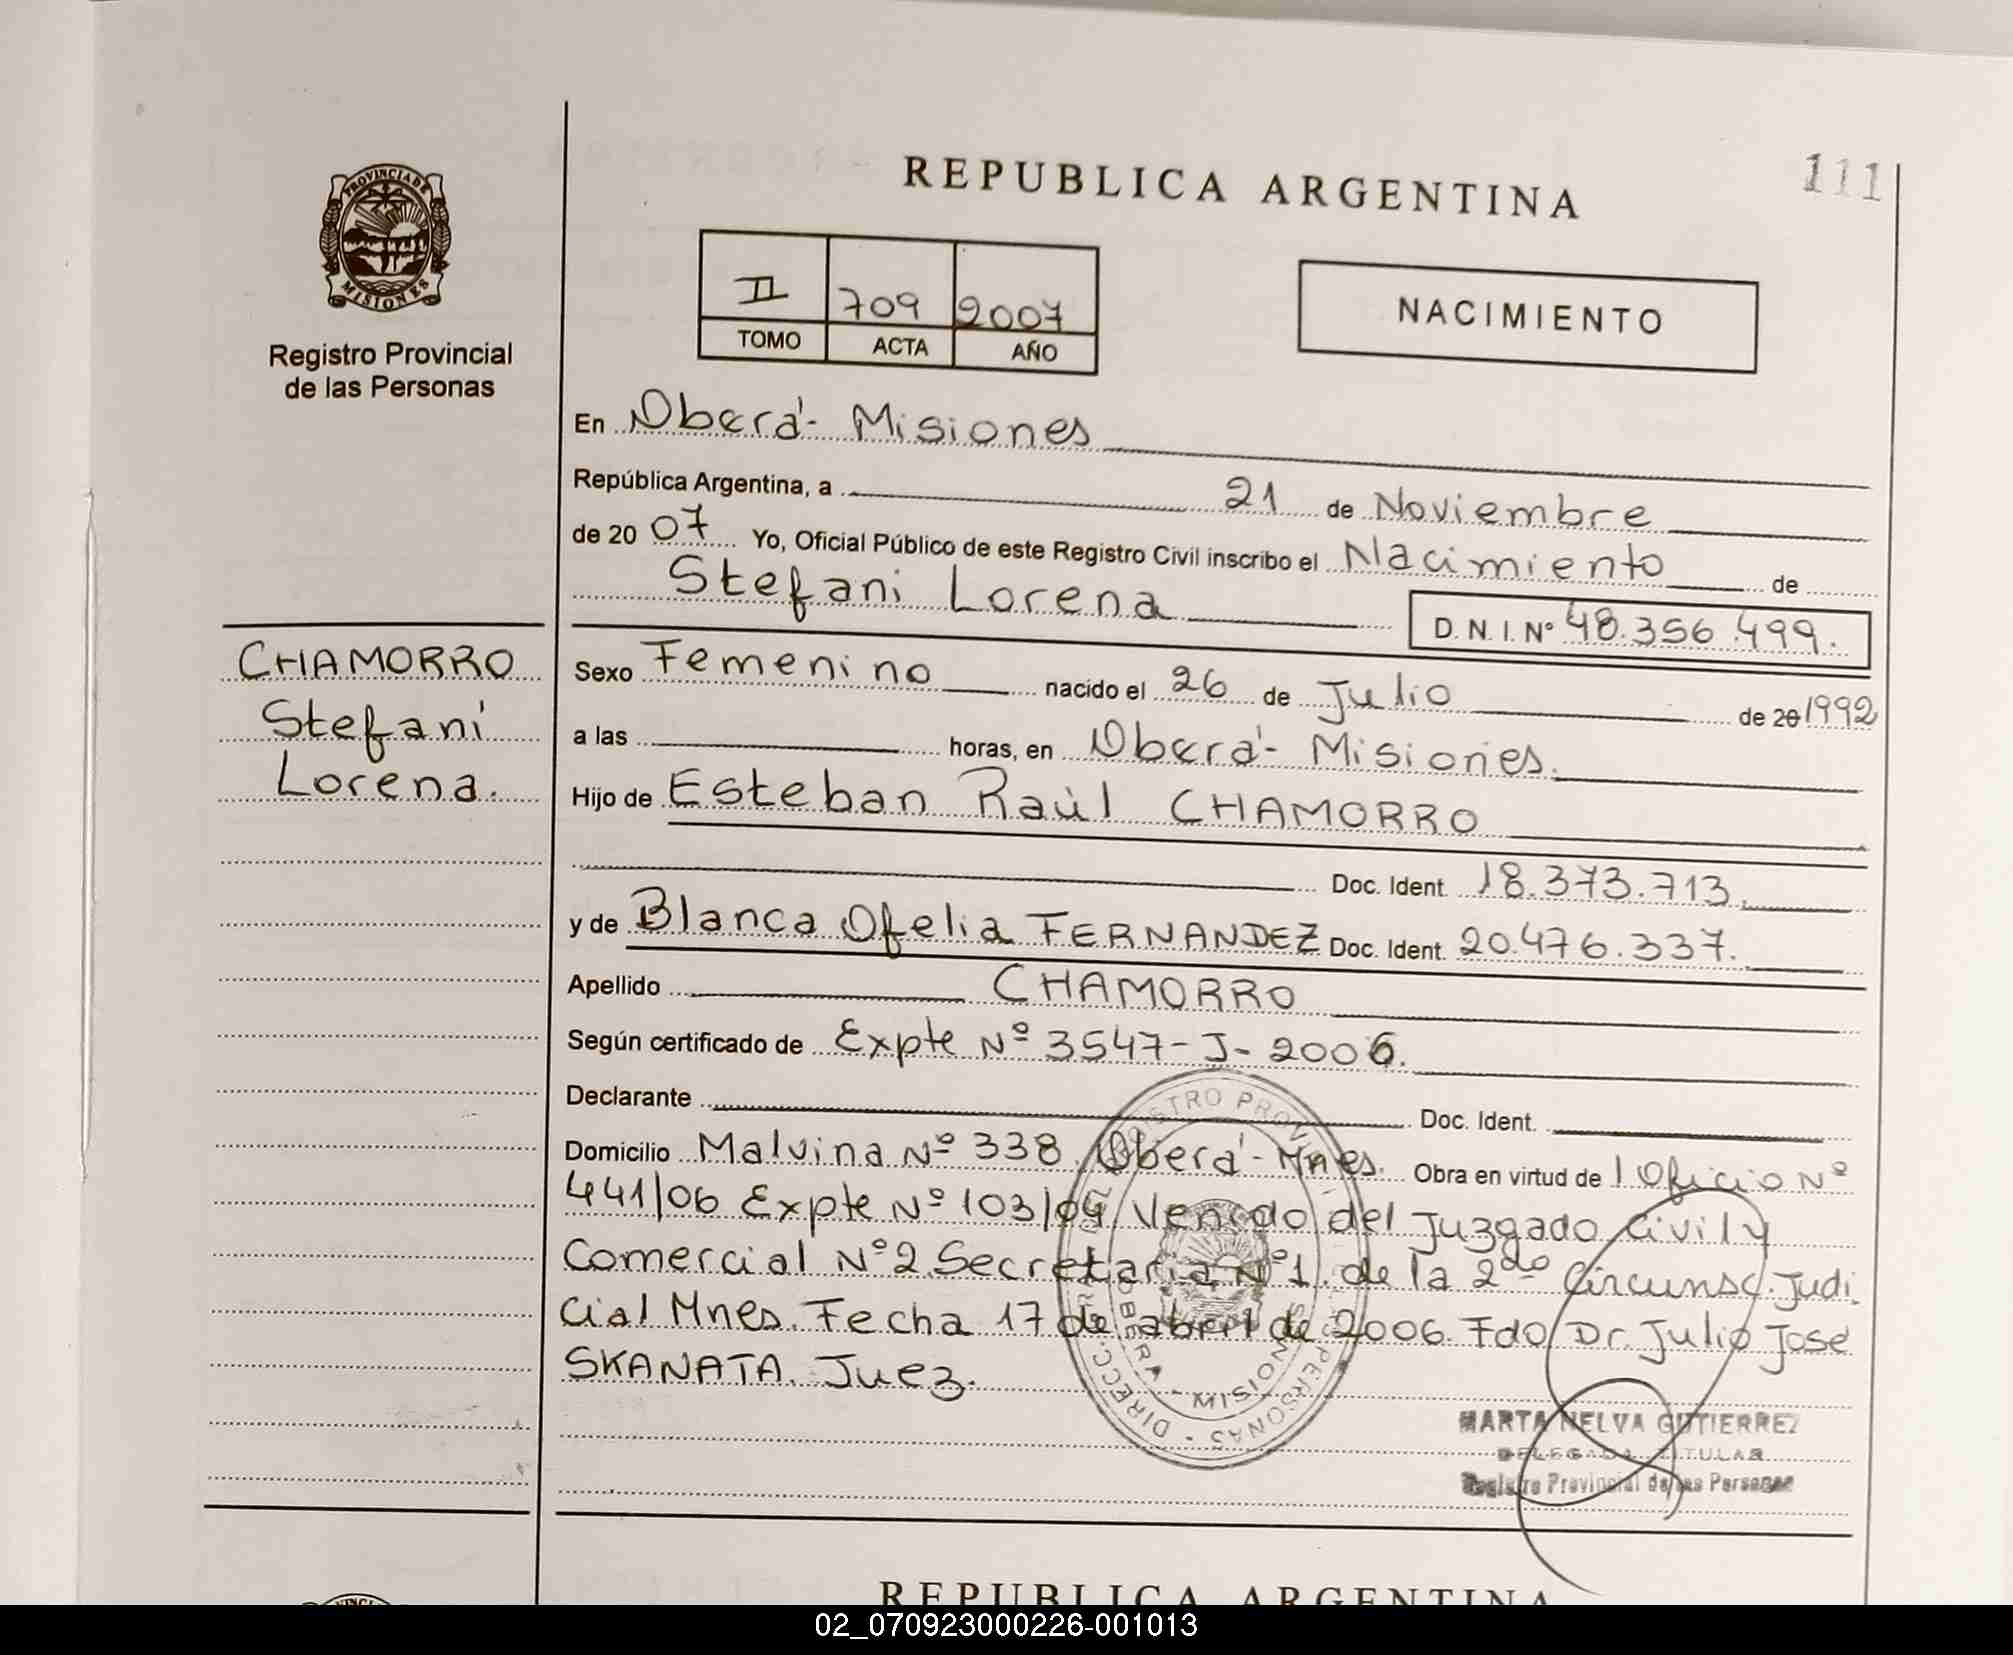 REPUBLICA ARGENTINA
111
PROVINCIA DE
MISIONES
Registro Provincial
de las Personas
II 709 2007
TOMO ACTA AÑO
NACIMIENTO
En Oberá - Misiones
República Argentina, a 21 de Noviembre
de 20 07 Yo, Oficial Público de este Registro Civil inscribo el Nacimiento de
Stefani Lorena D.N.I. Nº 48.356.499.
CHAMORRO
Stefani
Lorena.
Sexo Femenino nacido el 26 de Julio de 20 1992
a las horas, en Oberá - Misiones.
Hijo de Esteban Raúl CHAMORRO
Doc. Ident. 18.373.713.
y de Blanca Ofelia FERNANDEZ Doc. Ident. 20.476.337.
Apellido CHAMORRO
Según certificado de Expte Nº 3547-J-2006.
Declarante Doc. Ident.
Domicilio Malvina Nº 338 Oberá - Mnes. Obra en virtud de Oficio Nº
441/06 Expte Nº 103/04 del Juzgado Civil y
Comercial Nº 2 Secretaria Nº 1. de la 2do Circunsc. Judi
cial Mnes. Fecha 17 de abril de 2006. Fdo Dr. Julio José
SKANATA. Juez.
MISIONES
MARTA NELVA GUTIERREZ
DELEGADA TITULAR
Registro Provincial de las Personas
REPUBLICA ARGENTINA
02_070923000226-001013